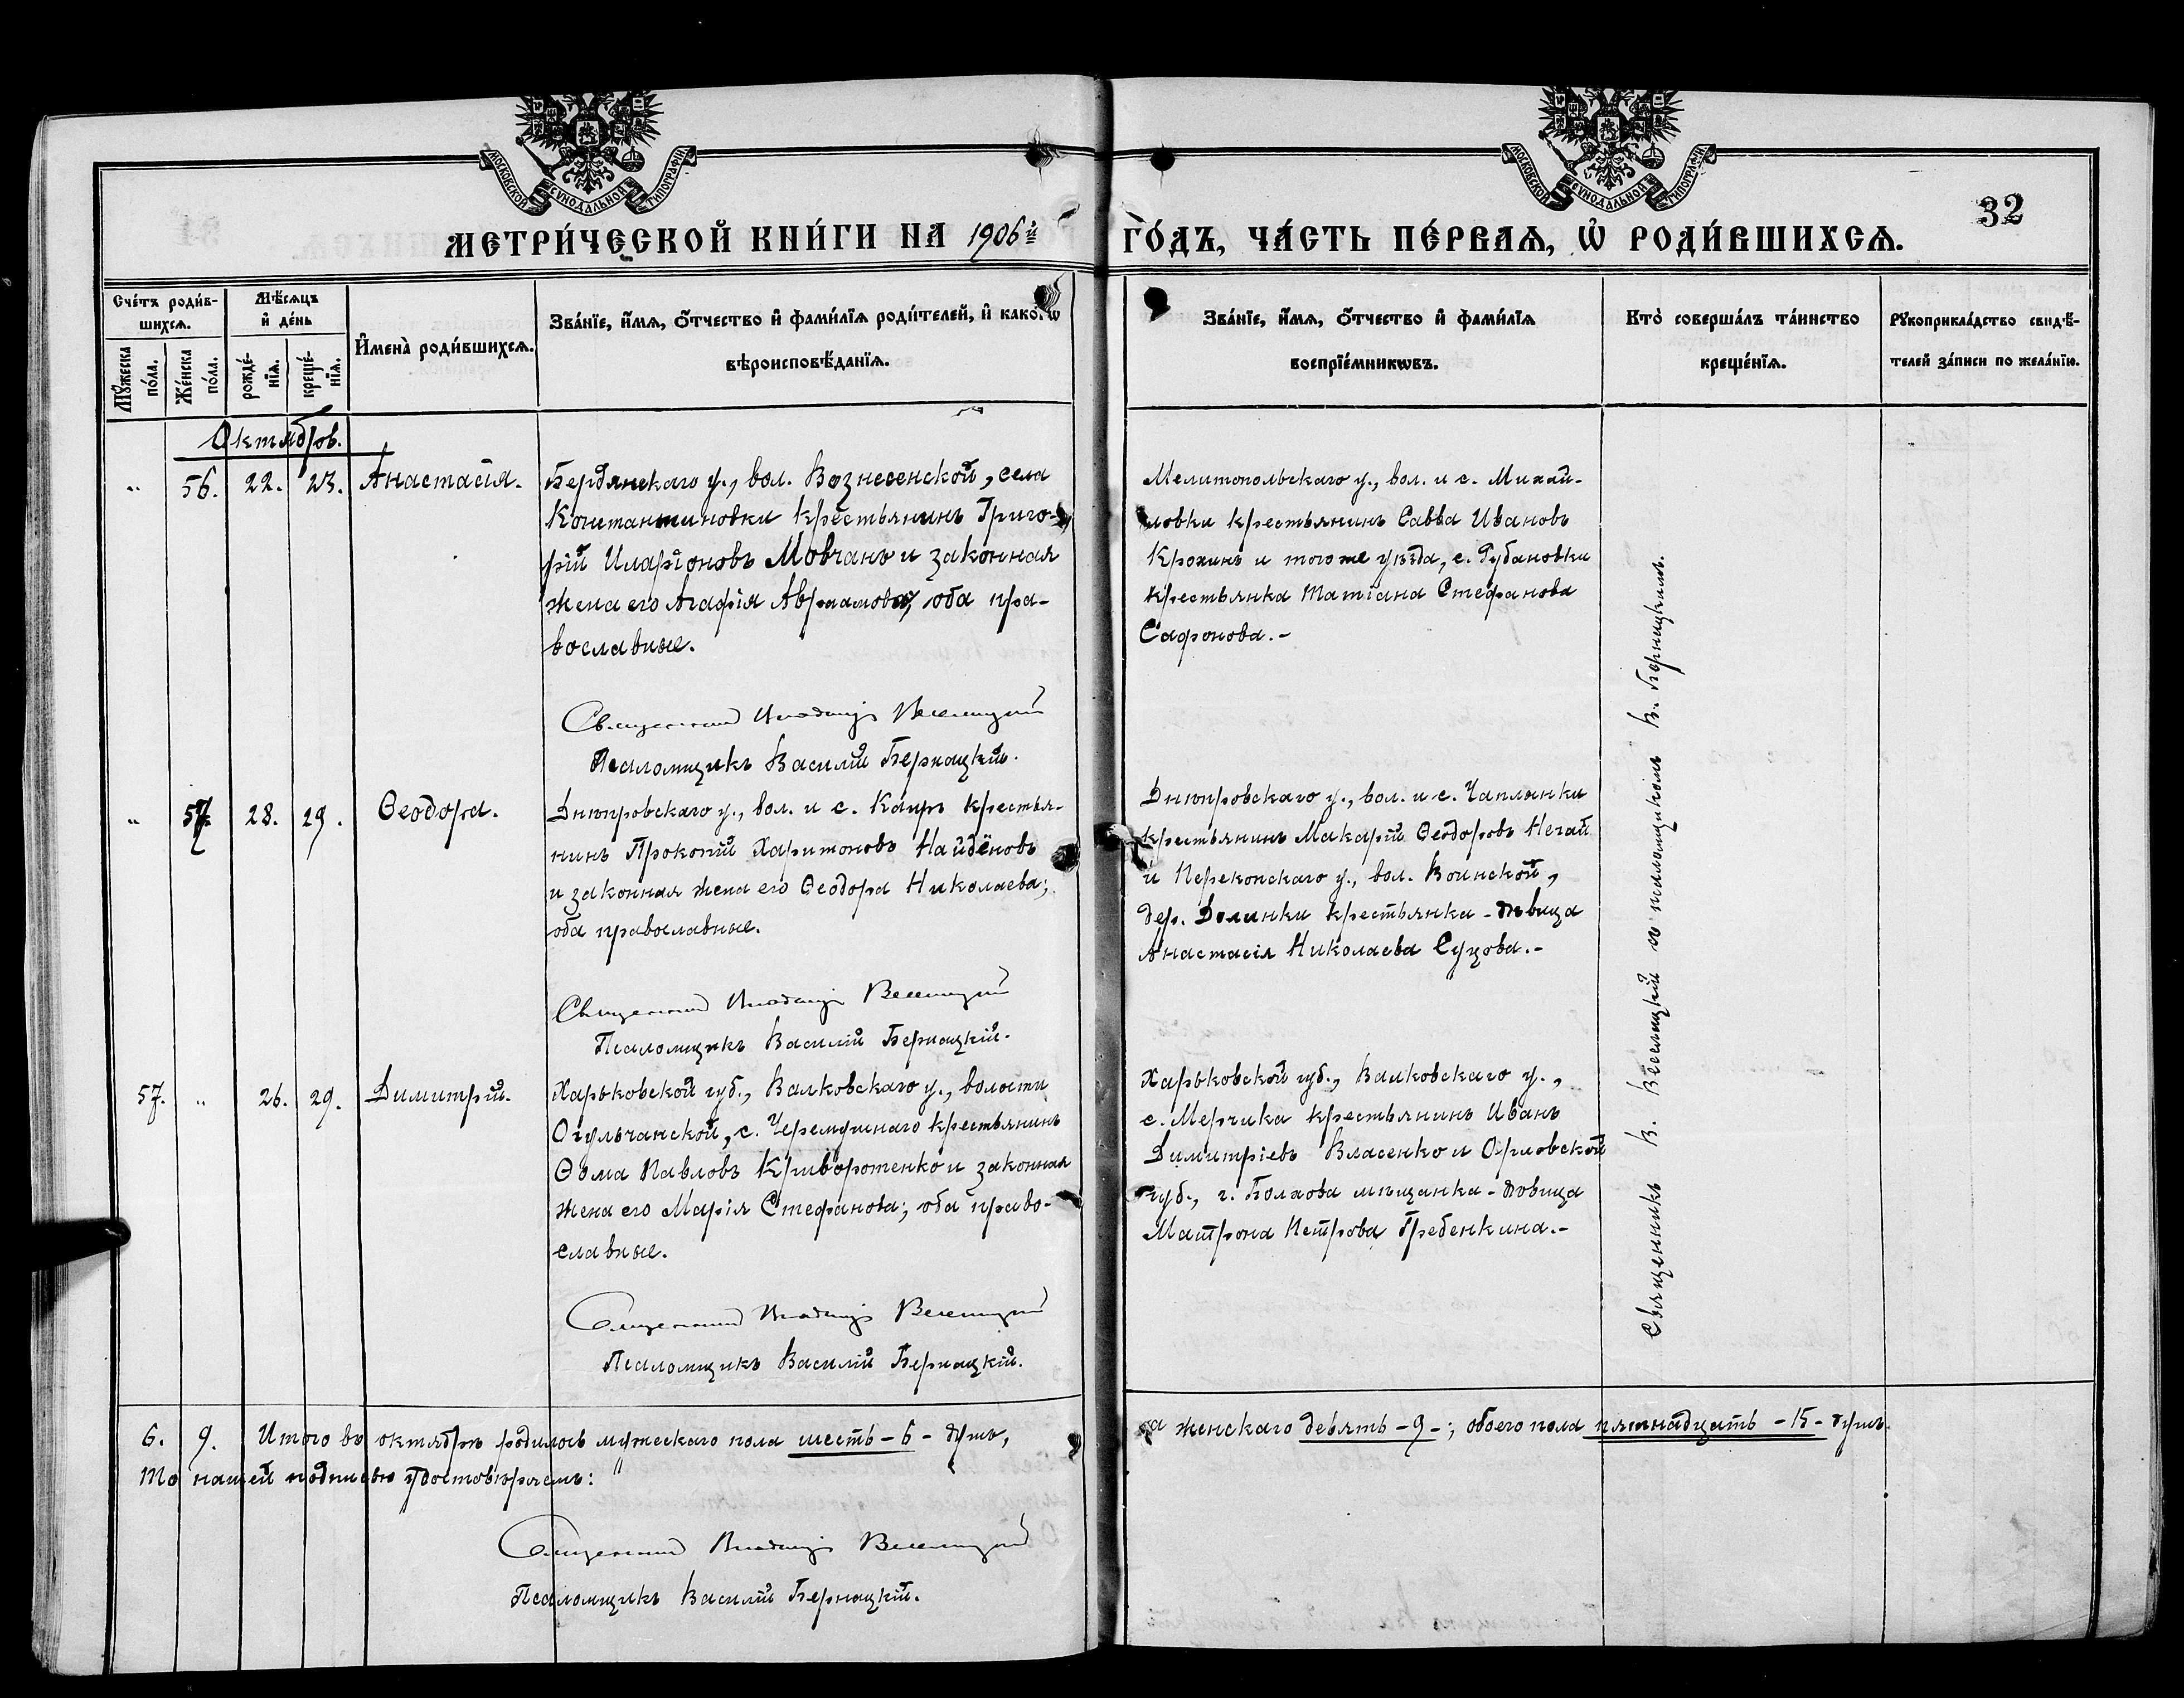 МОСКОВСКОЙ СѴНОДАЛЬНОЙ ТИПОГРАФІИ
МОСКОВСКОЙ СѴНОДАЛЬНОЙ ТИПОГРАФІИ
32
МЕТРИ́ЧЕСКОЙ КНИ́ГИ НА 1906й ГО́ДЪ, ЧА́СТЬ ПЕ́РВАѦ, Ѡ҆ РОДИ́ВШИХСѦ.
Сче́тъ роди́в-
шихсѧ.
Мꙋ́жеска по́ла.
Же́нска по́ла.
Мѣ́сѧцъ
и҆ де́нь
рожде́-
нїѧ.
креще́-
нїѧ.
И҆мена̀ роди́вшихсѧ.
Зва́нїе, и҆́мѧ, ѻ҆́тчество и҆ фами́лїѧ роди́телей, и҆ како́гѡ
вѣроисповѣ́данїѧ.
Зва́нїе, и҆́мѧ, ѻ҆́тчество и҆ фами́лїѧ
воспрїе́мникѡвъ.
Кто̀ соверша́лъ та́инство
креще́нїѧ.
Рꙋкоприкла́дство свидѣ́-
телей за́писи по жела́нїю.
Октябрь.
" 56. 22. 23. Анастасія.
Бердянскаго у., вол. Вознесенской, села
Константиновки крестьянинъ Григо-
рій Иларіоновъ Мовчанъ и законная
жена его Агафія Авраамова, оба пра-
вославные.
Священникъ Владиміръ Веселицкій
Псаломщикъ Василій Бернацкій.
Мелитопольскаго у., вол. и с. Михай-
ловки крестьянинъ Савва Ивановъ
Крохинъ и того же уѣзда, с. Рубановки
крестьянка Татіана Стефанова
Сафонова.-
" 57. 28. 29. Ѳеодора.
Днѣпровскаго у., вол. и с. Каиръ крестья-
нинъ Прокопій Харитоновъ Найдёновъ
и законная жена его Ѳеодора Николаева;
оба православные.
Священникъ Владиміръ Веселицкій
Псаломщикъ Василій Бернацкій.
Днѣпровскаго у., вол. и с. Чаплинки
крестьянинъ Макарій Ѳеодоровъ Негай
и Перекопскаго у., вол. Воинской,
дер. Долинки крестьянка-дѣвица
Анастасія Николаева Сузова.-
57. " 26. 29. Димитрій.
Харьковской губ., Валковскаго у., волости
Огульчанской, с. Черемушнаго крестьянинъ
Ѳома Павловъ Криворотенко и законная
жена его Марія Стефанова; оба право-
славные.
Священникъ Владиміръ Веселицкій
Псаломщикъ Василій Бернацкій.
Харьковской губ., Валковскаго у.,
с. Мерчика крестьянинъ Иванъ
Димитріевъ Власенко и Орловской
губ., г. Болхова мѣщанка-дѣвица
Матрона Петрова Гребенкина.-
Священникъ В. Веселицкій съ псаломщикомъ В. Бернацкимъ.
6. 9. Итого въ октябрѣ родилось мужескаго пола шесть - 6 - душъ,
а женскаго девять - 9 -; обоего пола пятнадцать - 15 - душъ.
То нашей подписью удостовѣряемъ:
Священникъ Владиміръ Веселицкій
Псаломщикъ Василій Бернацкій.